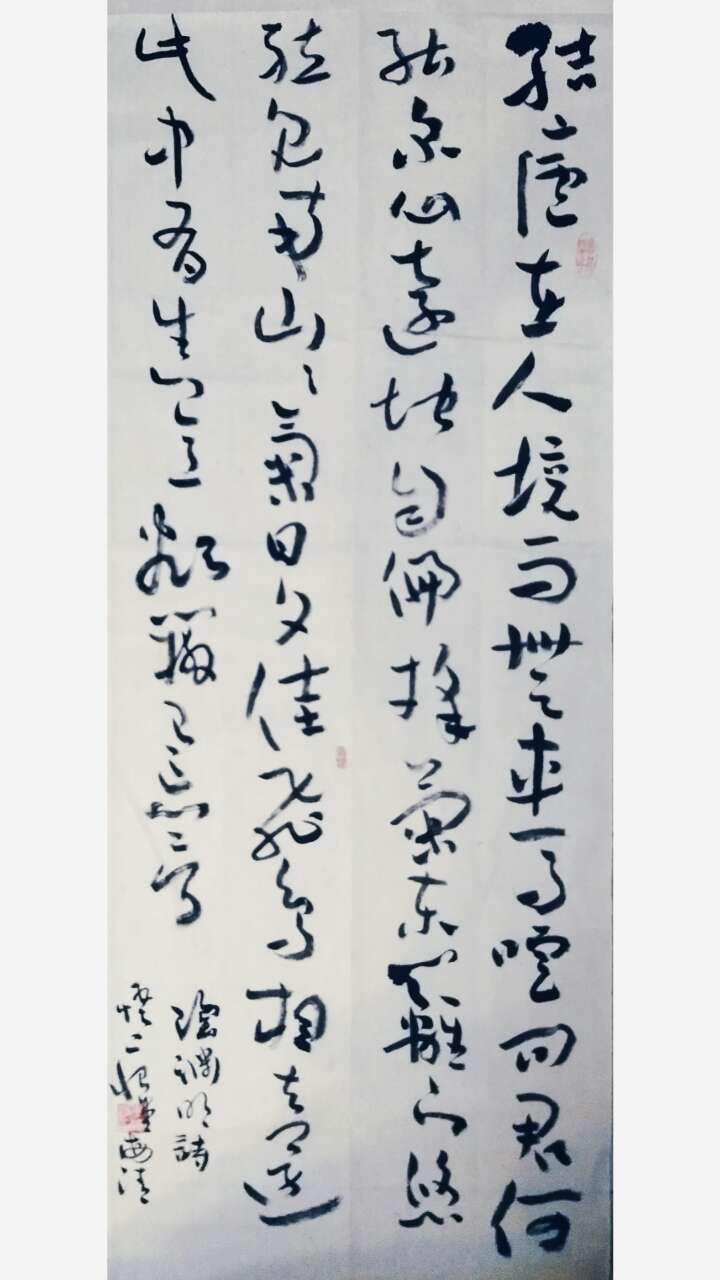 結廬在人境而無車馬喧問君何
能尔心遠地自偏採菊東籬下悠
然見南山〻氣日夕佳飛鳥相與還
此中有真意欲辯已忘言
陶淵明詩
海清